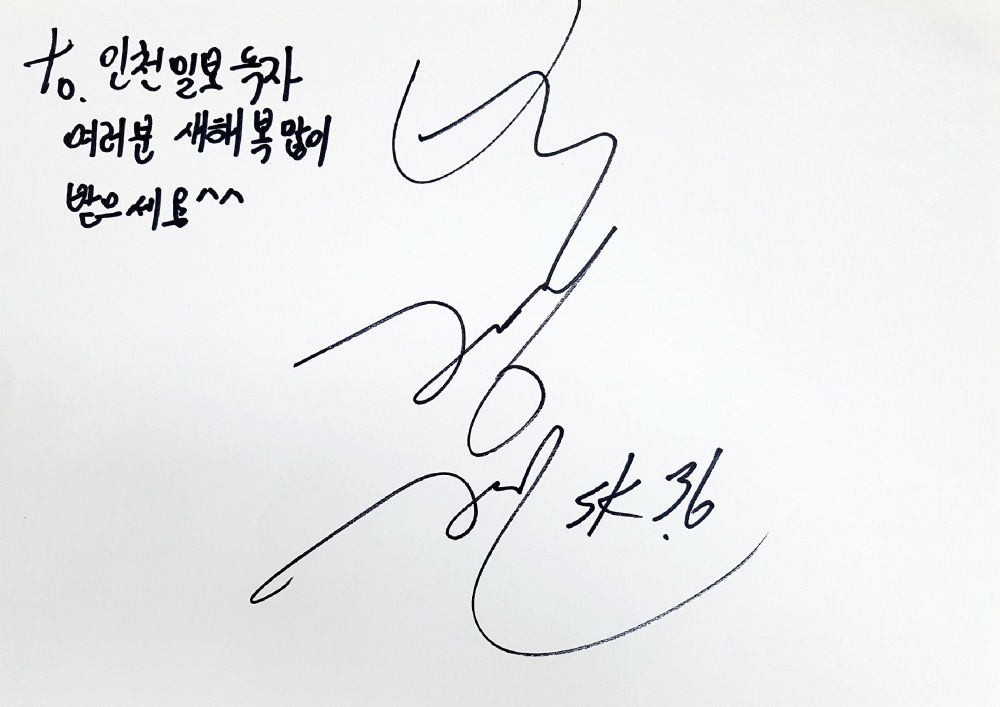 to. 인천일보 독자
여러분 새해 복 많이
받으세요^^
SK. 36